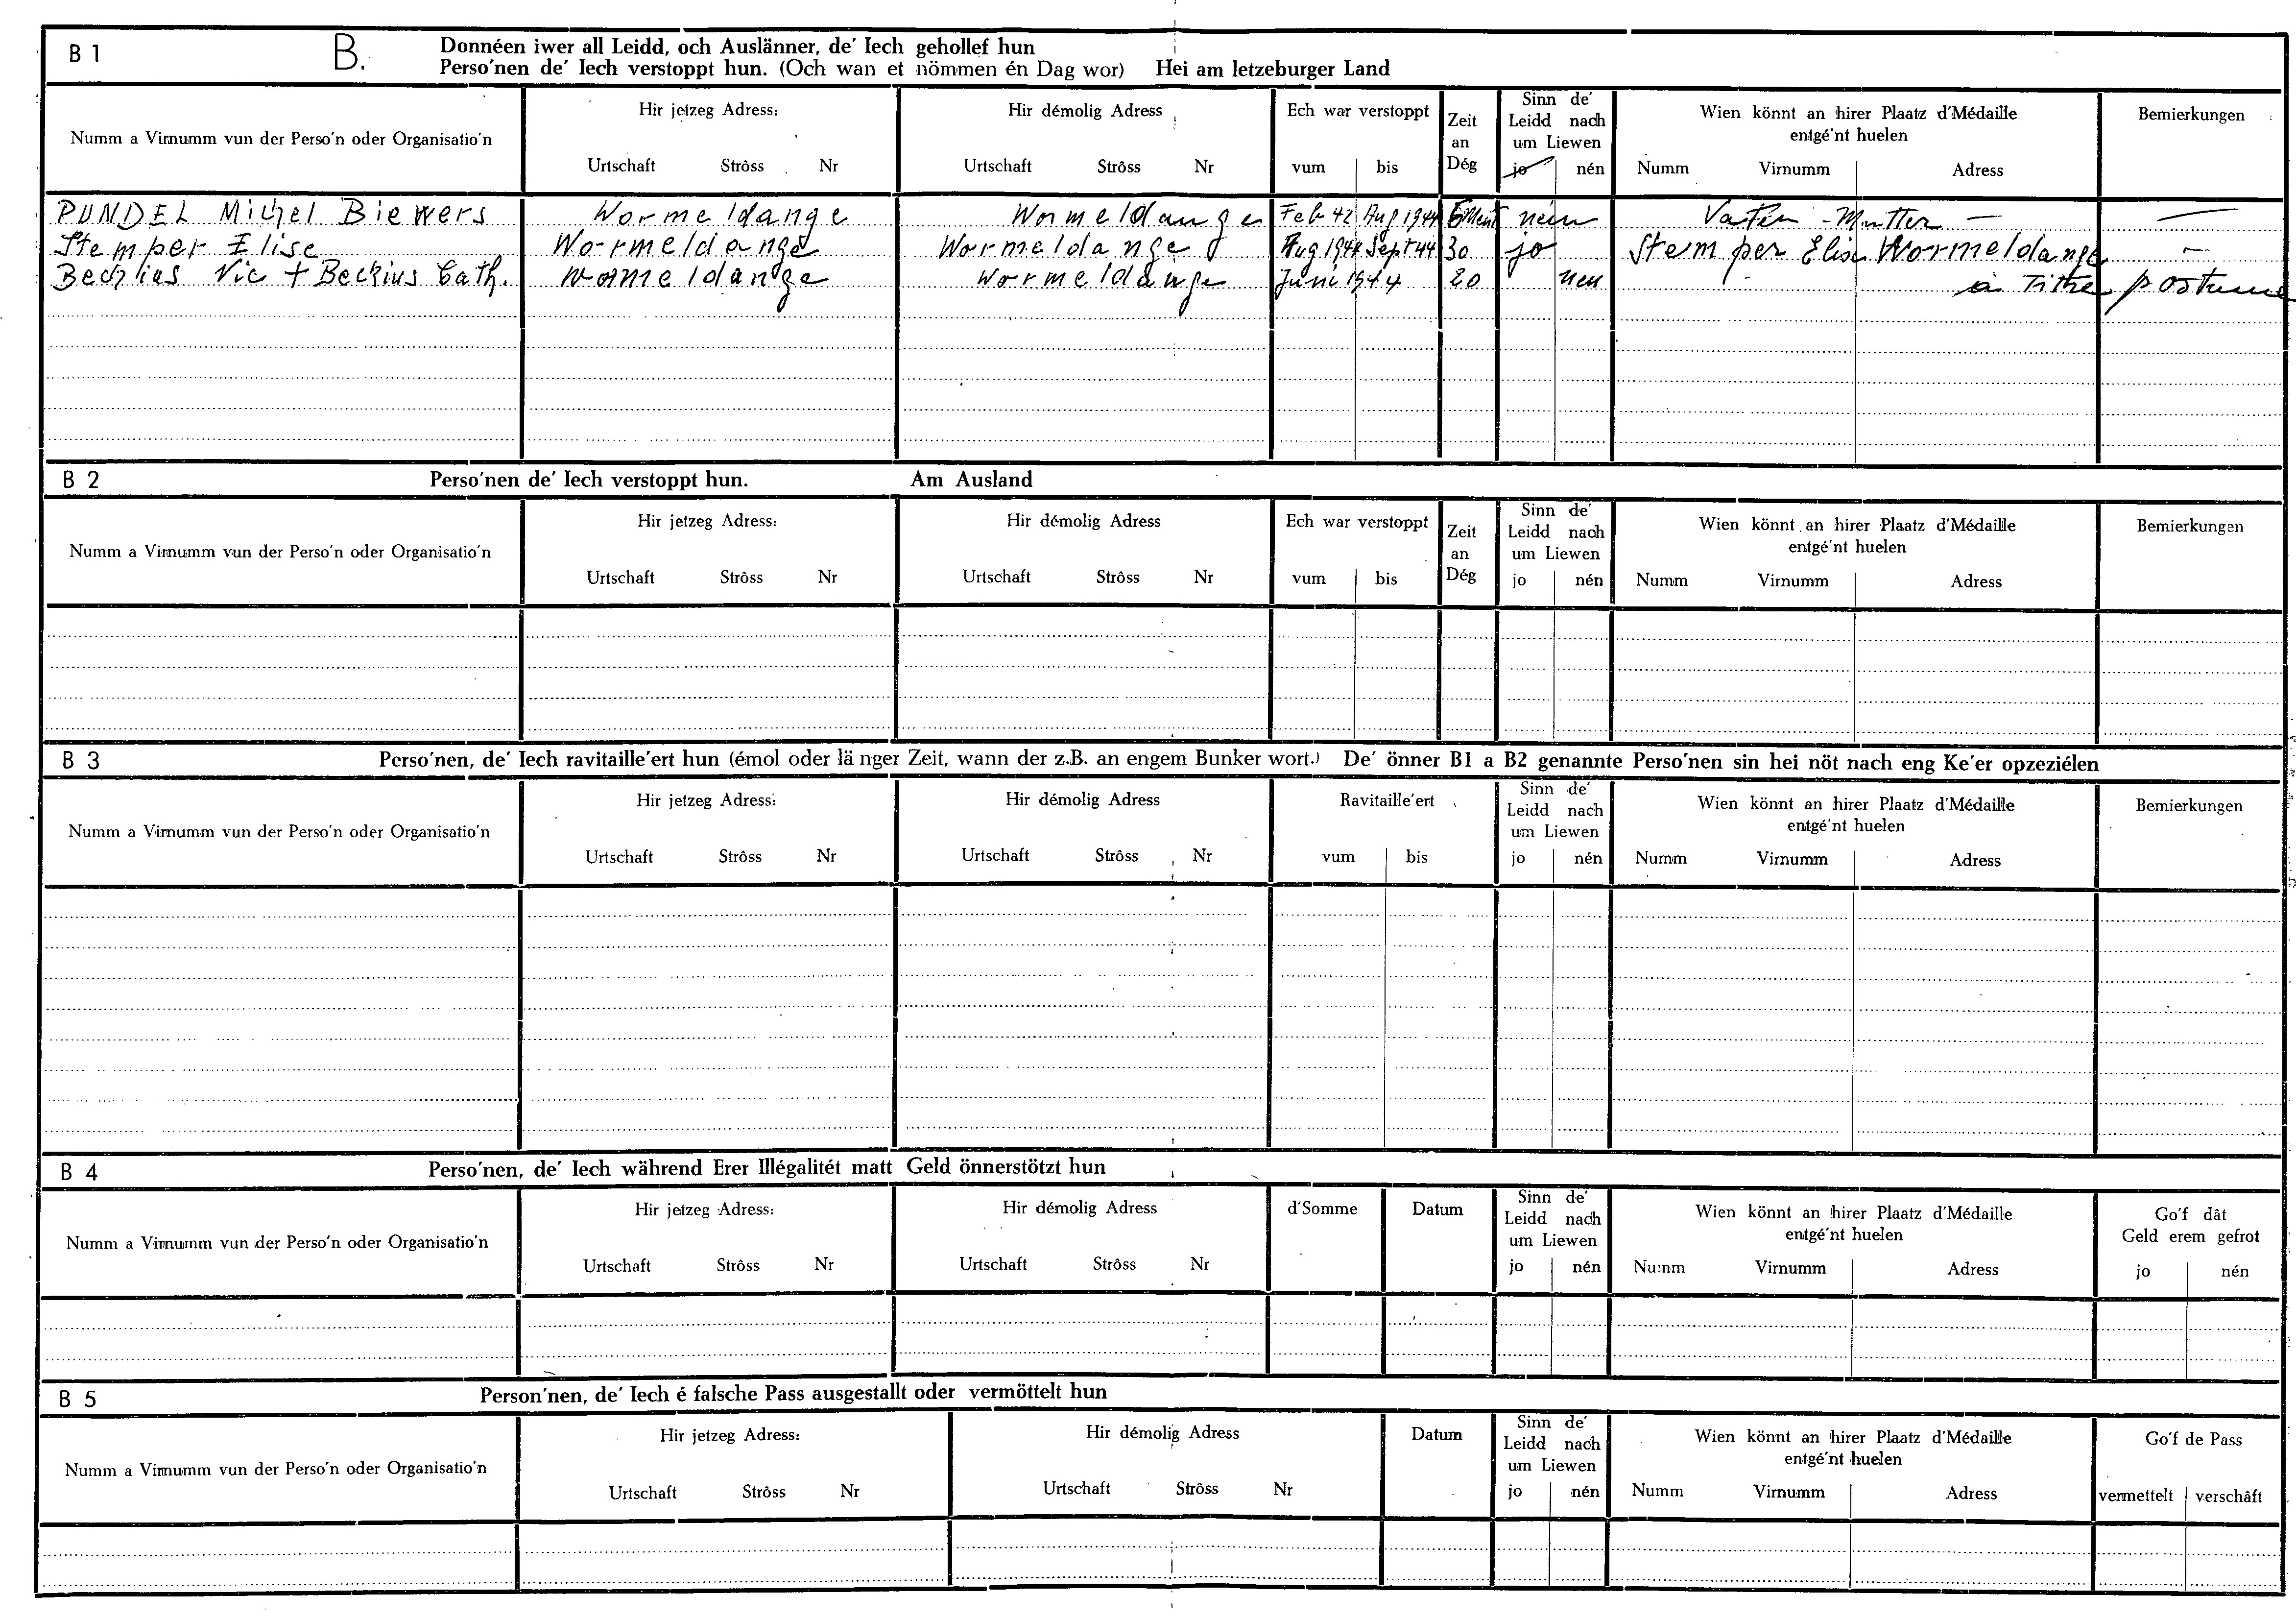 B 1 B. Donnéen iwer all Leidd, och Auslänner, de' Iech gehollef hun
Perso'nen de' Iech verstoppt hun. (Och wan et nömmen én Dag wor) Hei am letzeburger Land
Numm a Virnumm vun der Perso'n oder Organisatio'n
Hir jetzeg Adress:
Urtschaft Strôss Nr
Hir démolig Adress
Urtschaft Strôss Nr
Ech war verstoppt
vum bis
Zeit
an
Dég
Sinn de'
Leidd nach
um Liewen
jo nén
Wien könnt an hirer Plaatz d'Médaille
entgé'nt huelen
Numm Virnumm Adress
Bemierkungen
PUNDEL Michel Biewers Wormeldange Wormeldange Feb 42 Aug 1944 nein Mutter —
Stemper Elise Wormeldange Wormeldange Aug 1944 Sept 44 30 jo Stemper Elise Wormeldange —
Vic + Beckius Cath. Wormeldange Wormeldange Juni 1944 20 à Titre postume
B 2 Perso'nen de' Iech verstoppt hun. Am Ausland
Numm a Virnumm vun der Perso'n oder Organisatio'n
Hir jetzeg Adress:
Urtschaft Strôss Nr
Hir démolig Adress
Urtschaft Strôss Nr
Ech war verstoppt
vum bis
Zeit
an
Dég
Sinn de'
Leidd nach
um Liewen
jo nén
Wien könnt an hirer Plaatz d'Médaille
entgé'nt huelen
Numm Virnumm Adress
Bemierkungen
B 3 Perso'nen, de' Iech ravitaille'ert hun (émol oder länger Zeit, wann der z.B. an engem Bunker wort.) De' önner B1 a B2 genannte Perso'nen sin hei nöt nach eng Ke'er opzeziélen
Numm a Virnumm vun der Perso'n oder Organisatio'n
Hir jetzeg Adress:
Urtschaft Strôss Nr
Hir démolig Adress
Urtschaft Strôss Nr
Ravitaille'ert
vum bis
Sinn de'
Leidd nach
um Liewen
jo nén
Wien könnt an hirer Plaatz d'Médaille
entgé'nt huelen
Numm Virnumm Adress
Bemierkungen
B 4 Perso'nen, de' Iech während Erer Illégalitét matt Geld önnerstötzt hun
Numm a Virnumm vun der Perso'n oder Organisatio'n
Hir jetzeg Adress:
Urtschaft Strôss Nr
Hir démolig Adress
Urtschaft Strôss Nr
d'Somme
Datum
Sinn de'
Leidd nach
um Liewen
jo nén
Wien könnt an hirer Plaatz d'Médaille
entgé'nt huelen
Numm Virnumm Adress
Go'f dât
Geld erem gefrot
jo nén
B 5 Person'nen, de' Iech é falsche Pass ausgestallt oder vermöttelt hun
Numm a Virnumm vun der Perso'n oder Organisatio'n
Hir jetzeg Adress:
Urtschaft Strôss Nr
Hir démolig Adress
Urtschaft Strôss Nr
Datum
Sinn de'
Leidd nach
um Liewen
jo nén
Wien könnt an hirer Plaatz d'Médaille
entgé'nt huelen
Numm Virnumm Adress
Go'f de Pass
vermettelt verschâft